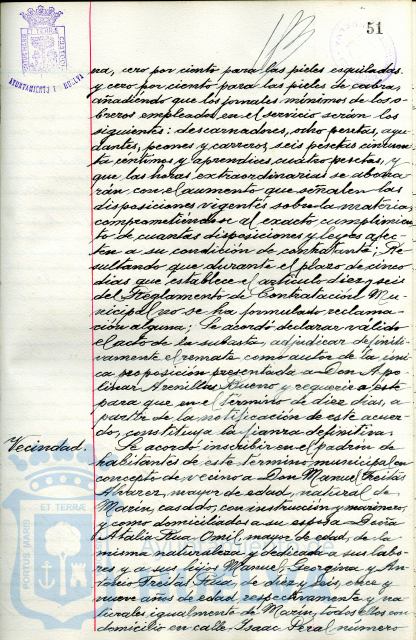 51
AYUNTAMIENTO DE HUELVA
na, cero por ciento para las pieles esquiladas
y cero por ciento para las pieles de cabra,
añadiendo que los jornales mínimos de los o-
breros empleados en el servicio serán los
siguientes: descarnadores, ocho pesetas, ayu-
dantes, peones y carreros, seis pesetas cincuen-
ta céntimos y aprendices cuatro pesetas, y
que las horas extraordinarias se abona-
rán con el aumento que señalen las
disposiciones vigentes sobre la materia,
comprometiéndose al exacto cumplimien-
to de cuantas disposiciones y leyes afec-
ten a su condición de contratante; Re-
sultando que durante el plazo de cinco
dias que establece el artículo diez y seis
del Reglamento de Contratación Mu-
nicipal no se ha formulado reclama-
ción alguna; Se acordó declarar válido
el acto de la subasta, adjudicar definiti-
vamente el remate como autor de la úni-
ca proposición presentada a Don Apo-
linar Arenillas Bueno y requerir a éste
para que en el término de diez dias, a
partir de la notificación de este acuer-
do, constituya la fianza definitiva.
Vecindad. Se acordó inscribir en el padrón de
habitantes de este término municipal en
concepto de vecino a Don Manuel Freitas
Alvarez, mayor de edad, natural de
Marín, casado, con instrucción y marinero,
y como domiciliados a su esposa Doña
Natalia Rua Omil, mayor de edad, de la
misma naturaleza y dedicada a sus labo-
res y a sus hijos Manuel, Georgina y An-
tonio Freitas Rua, de diez y seis, once y
nueve años de edad respectivamente y na-
turales igualmente de Marín, todos ellos con
domicilio en calle Isaac Peral número
PORTUS MARIS ET TERRÆ